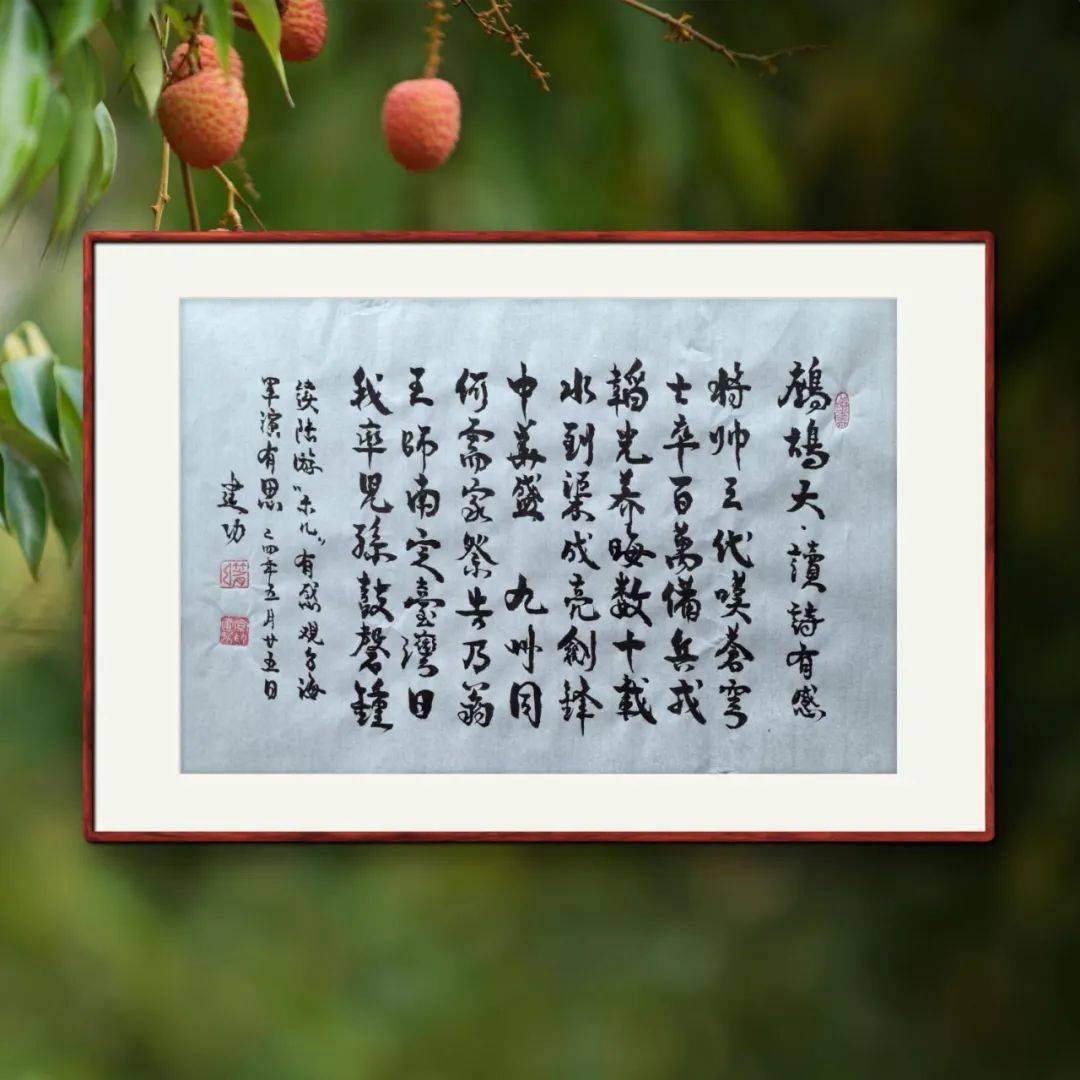 鷓鴣天·讀詩有感
將帥三代嘆蒼穹
士卒百萬備兵戎
韜光养晦數十載
水到渠成亮劍鋒
中華盛 九州同
何需家祭告乃翁
王師南定臺灣日
我率兒孫鼓磬鐘
读陆游“示儿”有感观台海
军演有思 二四年五月廿五日
建功